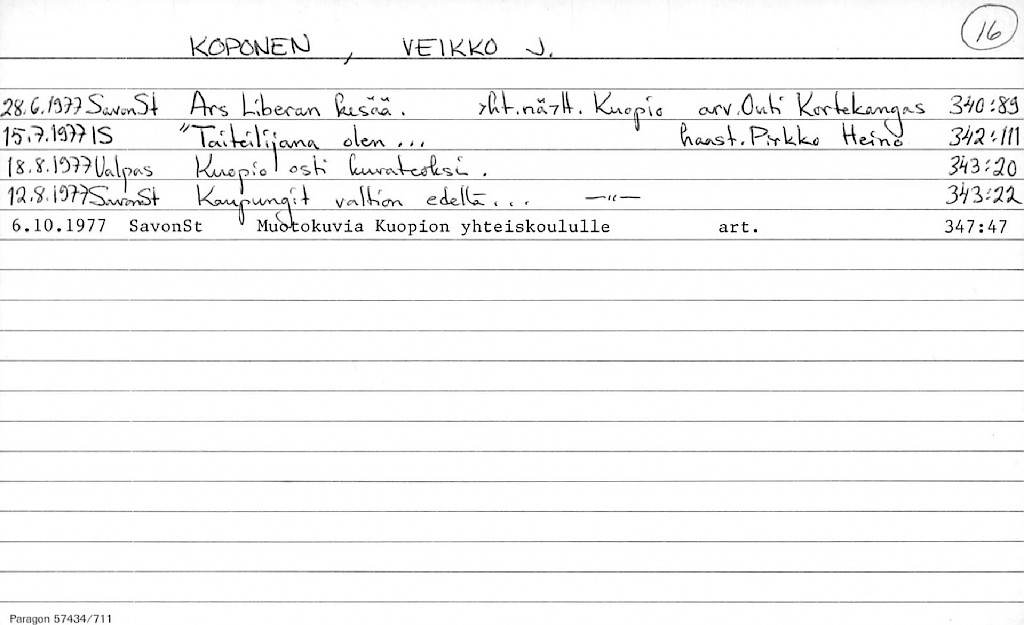 16
KOPONEN, VEIKKO J.
28.6.1977 SavonSt Ars Liberan kesää. yht.näytt. Kuopio arv. Outi Kortekangas 340:89
15.7.1977 IS "Taiteilijana olen... haast. Pirkko Heino 342:111
18.8.1977 Valpas Kuopio osti kuvateoksi. 343:20
12.8.1977 SavonSt Kaupungit valtion edellä... —"— 343:22
6.10.1977 SavonSt Muotokuvia Kuopion yhteiskoululle art. 347:47
Paragon 57434/711